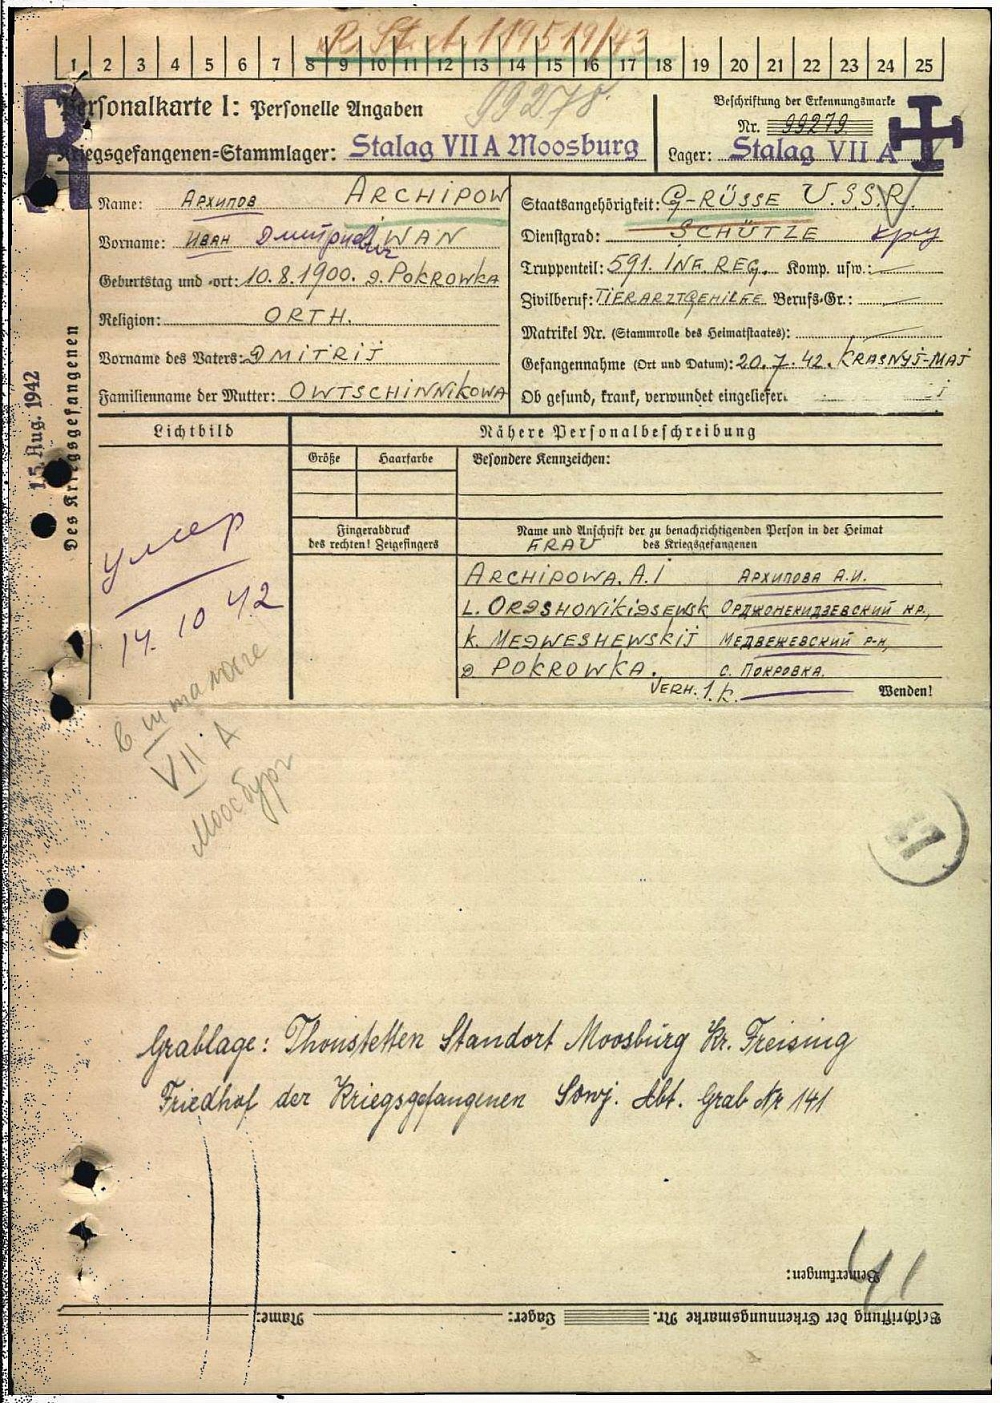 R. St. A. 119519/43
1 2 3 4 5 6 7 8 9 10 11 12 13 14 15 16 17 18 19 20 21 22 23 24 25
R
Personalkarte I: Personelle Angaben
99278.
Kriegsgefangenen=Stammlager: Stalag VII A Moosburg
Beschriftung der Erkennungsmarke
Nr. 99279
Lager: Stalag VII A
Name: Архипов ARCHIPOW
Vorname: Иван Дмитриевич IWAN
Geburtstag und -ort: 10.8.1900. D. POKROWKA
Religion: ORTH.
Vorname des Vaters: DMITRIJ
Familienname der Mutter: OWTSCHINNIKOWA
Staatsangehörigkeit: G-RÜSSE U.S.S.R.
Dienstgrad: SCHÜTZE
Truppenteil: 591. INF. REG. Komp. usw.:
Zivilberuf: TIERARZTGEHILFE Berufs-Gr.:
Matrikel Nr. (Stammrolle des Heimatstaates):
Gefangennahme (Ort und Datum): 20.7.42. KRASNYJ-MAJ
Ob gesund, krank, verwundet eingeliefert:
15. Aug. 1942
Des Kriegsgefangenen
Lichtbild
Nähere Personalbeschreibung
Größe
Haarfarbe
Besondere Kennzeichen:
Fingerabdruck
des rechten! Zeigefingers
Name und Anschrift der zu benachrichtigenden Person in der Heimat
des Kriegsgefangenen
FRAU
ARCHIPOWA. A.I АРХИПОВА А.И.
L. ORDSHONIKIDSEWSK ОРДЖОНЕКИДЗЕВСКИЙ КР.,
K. MEDWESHEWSKIJ МЕДВЕЖЕВСКИЙ Р-Н,
D POKROWKA. С. ПОКРОВКА.
VERH. 1.K.
Wenden!
умер
14. 10 42
в шталаге
VII A
Моосбург
Grablage: Thonstetten Standort Moosburg Kr. Freising
Friedhof der Kriegsgefangenen Sowj. Abt. Grab Nr 141
41
Bemerkungen:
Beschriftung der Erkennungsmarke Nr. Lager: Name: